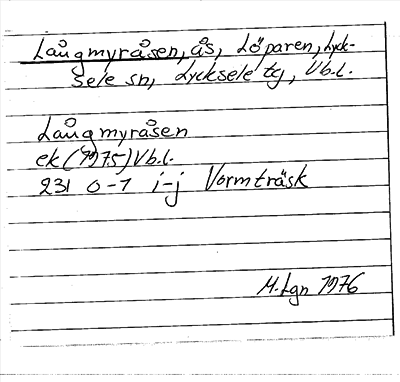 Långmyråsen, ås, Löparen, Lyck-
sele sn, Lycksele tg, Vb.l.
Långmyråsen
ek (1975) Vb.l.
231 0-1 i-j Vormträsk
M.Lgn 1976